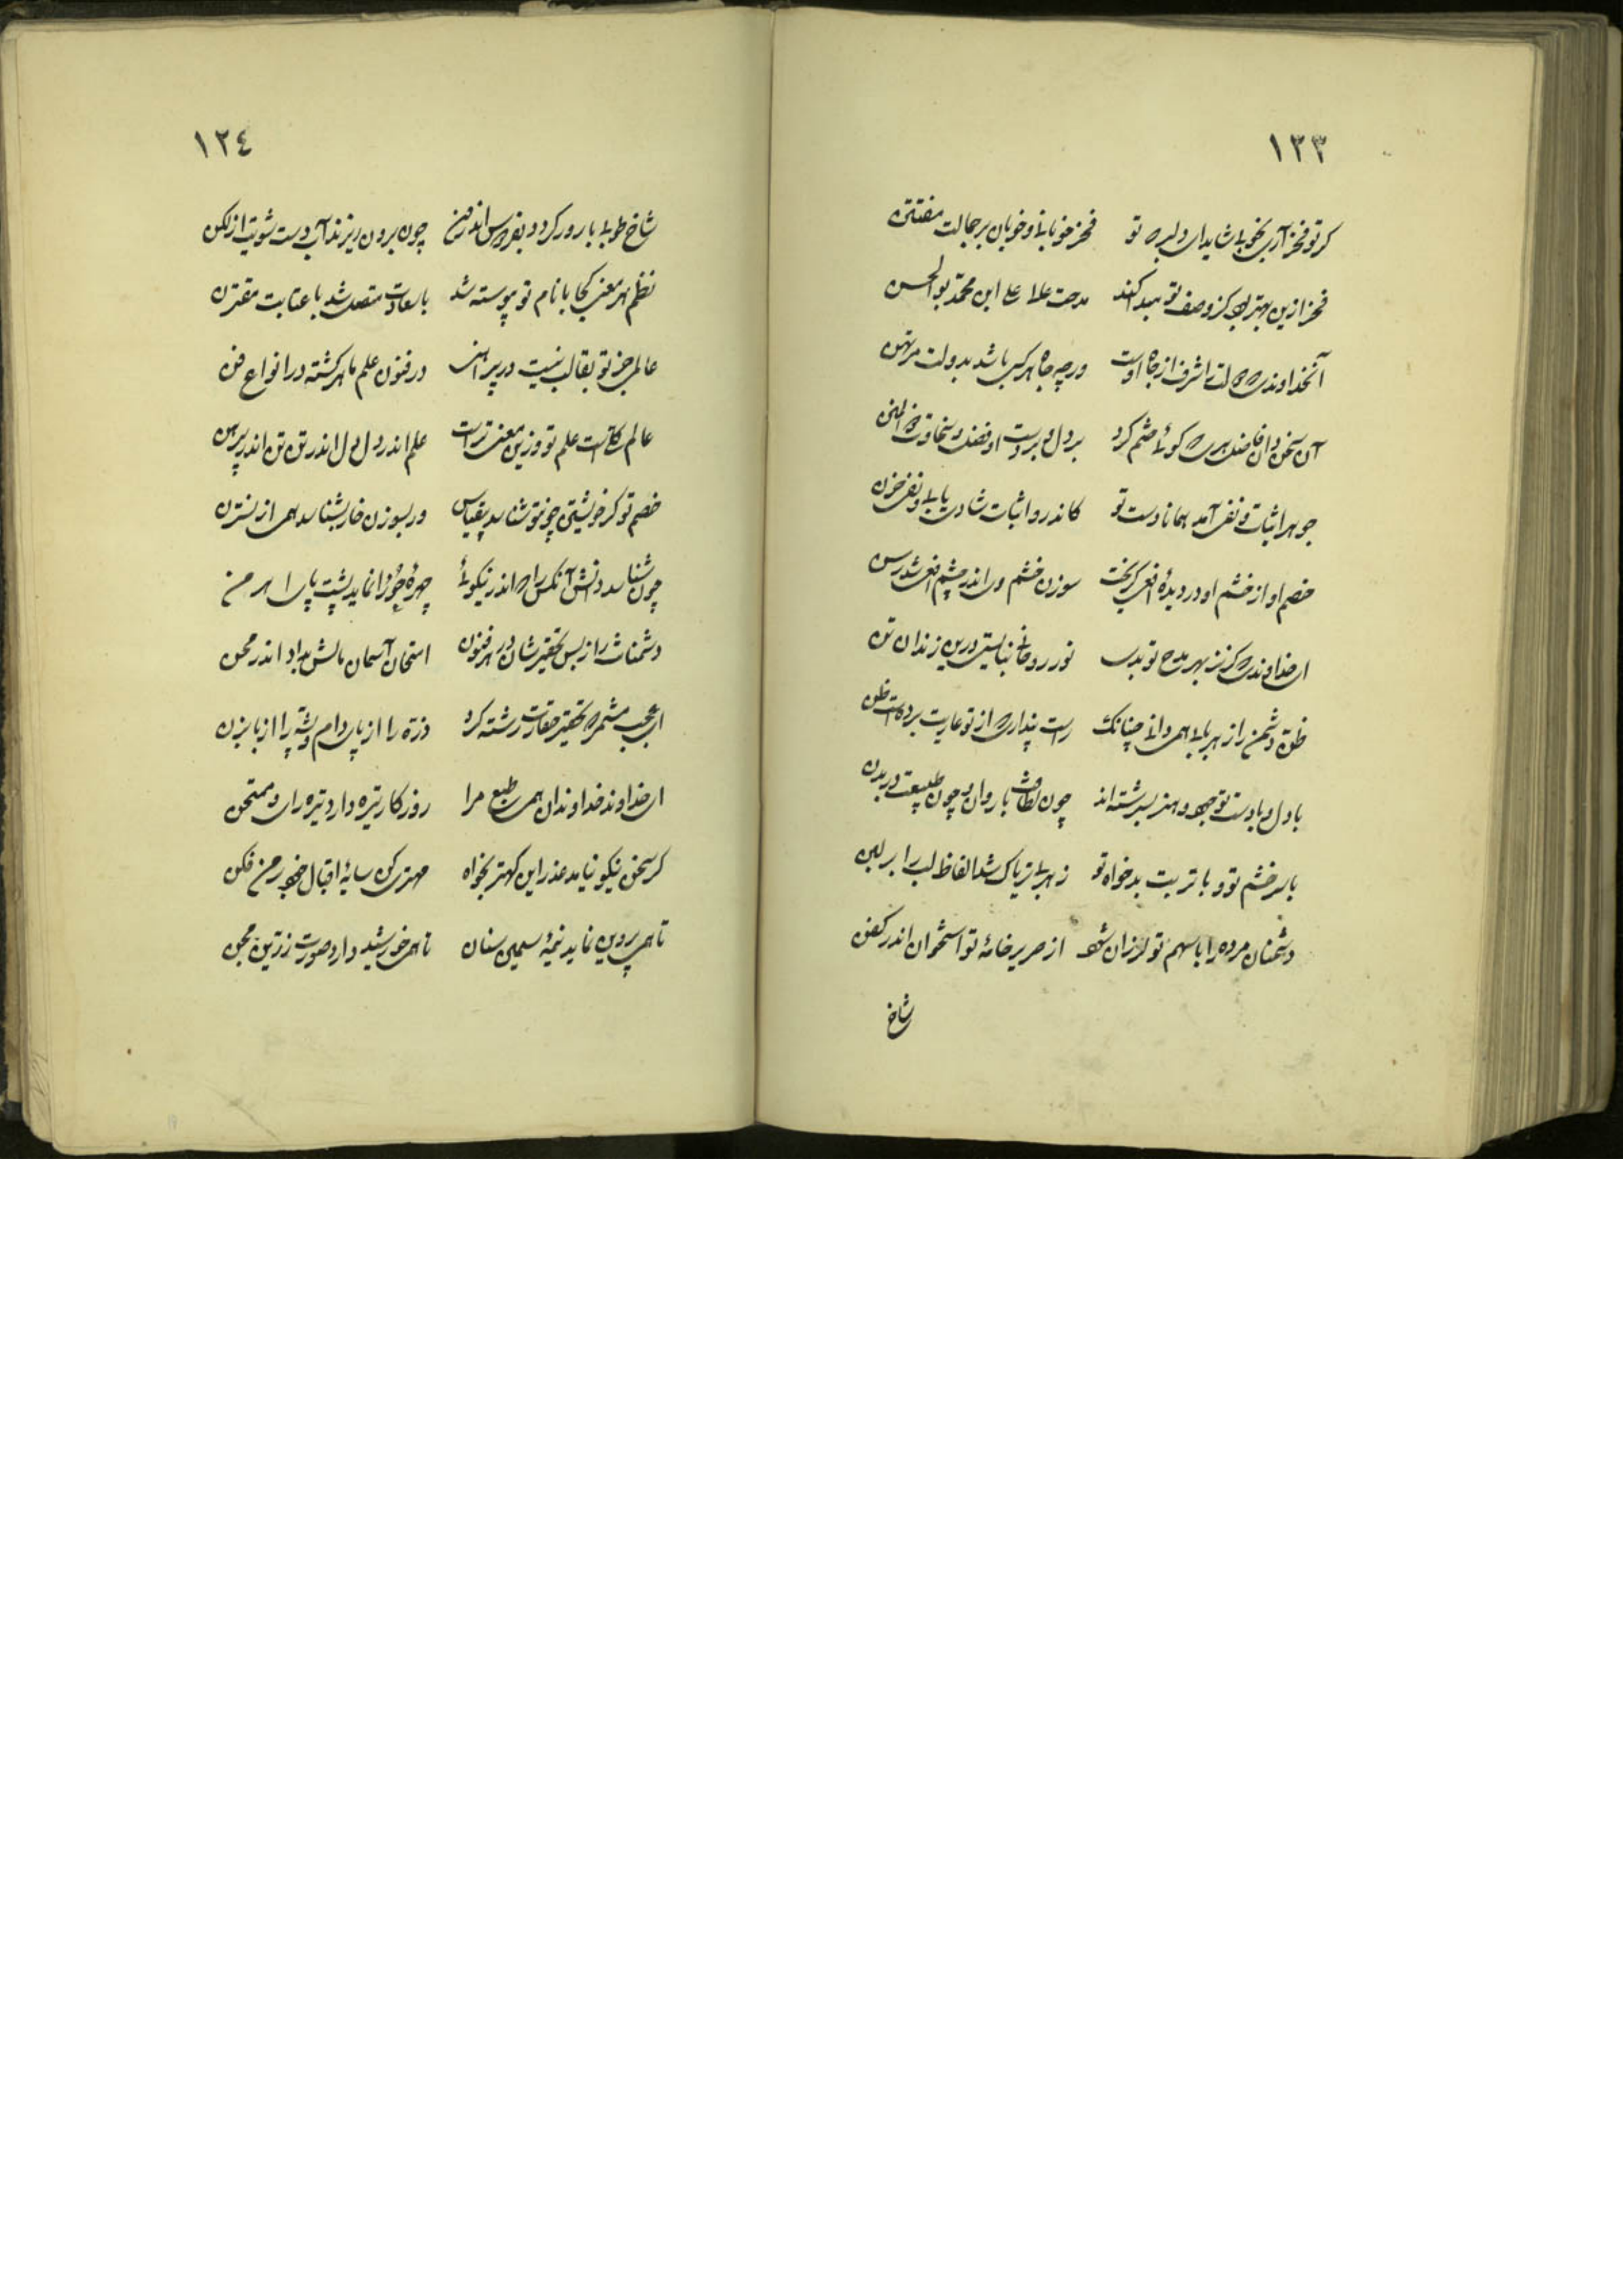 ١٢٣
کر تو فخر آری بخوبی شاید ای دلبر که تو فخر خوبانی و خوبان بر جمالت مفتتن
فخر ازین بهتر بود کز وصف تو پیدا کند مدحت علی ابن محمد بوالحسن
آنخداوندی که دولت اشرف از جاه اوست ورچه جاه هر کسی باشد بدولت مرتهن
آن سخن دان فاضلی که گوئی ختم کرد بر دل و بر دست او فضل و سخاوت ذوالمنن
جوهر اثبات و نفی آمد همانا دست تو کاندرو اثبات شادی یابی و نفی حزن
خصم او از خشم او در دیده افعی گریخت سوزن خشم وی اندر چشم افعی شد رسن
ای خداوندی که گر نز بهر مدح تو بدی نور روحانی نبایستی درین زندان تن
ظن دشمن را ز هر بابی همی دانی چنانک راست پنداری که از تو عاریت بردست ظن
با دل و با دست تو جود و هنر بسرشته اند چون لطافت با روان و چون طبیعت در بدن
با سر خشم تو و با تربت بدخواه تو زهر با تریاک شد الفاظ لب را بر لبن
دشمنان مرده را با سهم تو لرزان شود از صریر خامهٔ تو استخوان اندر کفن
شاخ
١٢٤
شاخ طوبی بارور گردد بفردوس اندرون چون برون ریزند آب دست شویت از لگن
نظم هر معنی کجا با نام تو پیوسته شد با سعادت متصل شد با عنایت مقترن
عالمی جز تو بقالب نیست در پیراهنی در فنون علم ماهر گشته در انواع فن
عالم کلیست علم تو وزین معنی تراست علم اندر دل دل اندر تن تن اندر پیرهن
خصم تو گر خویشتن چون تو شناسد بیقیاس ور بسوزن خار بشناسد همی از نسترن
چون شناسد دانش آنکس را که اندر نیکوئی چهرهٔ حورا نماید پشت پای اهرمن
دشمنانت را ز بس تحقیر شان در هر فنون امتحان آسمان مالش بداد اندر محن
ای عجب مشمر که تحقیر حقارت رشته کرد ذره را از پای دام و پشه را از بابزن
ای خداوند خداوندان همی طبع مرا روزگار تیره دارد تیره رای و ممتحن
گر سخن نیکو نیاید عذر این کهتر بخواه مهتری کن سایهٔ اقبال خود بر من فکن
تا همی پروین نماید نیمهٔ سیمین سنان تا همی خورشید دارد صورت زرین مجن